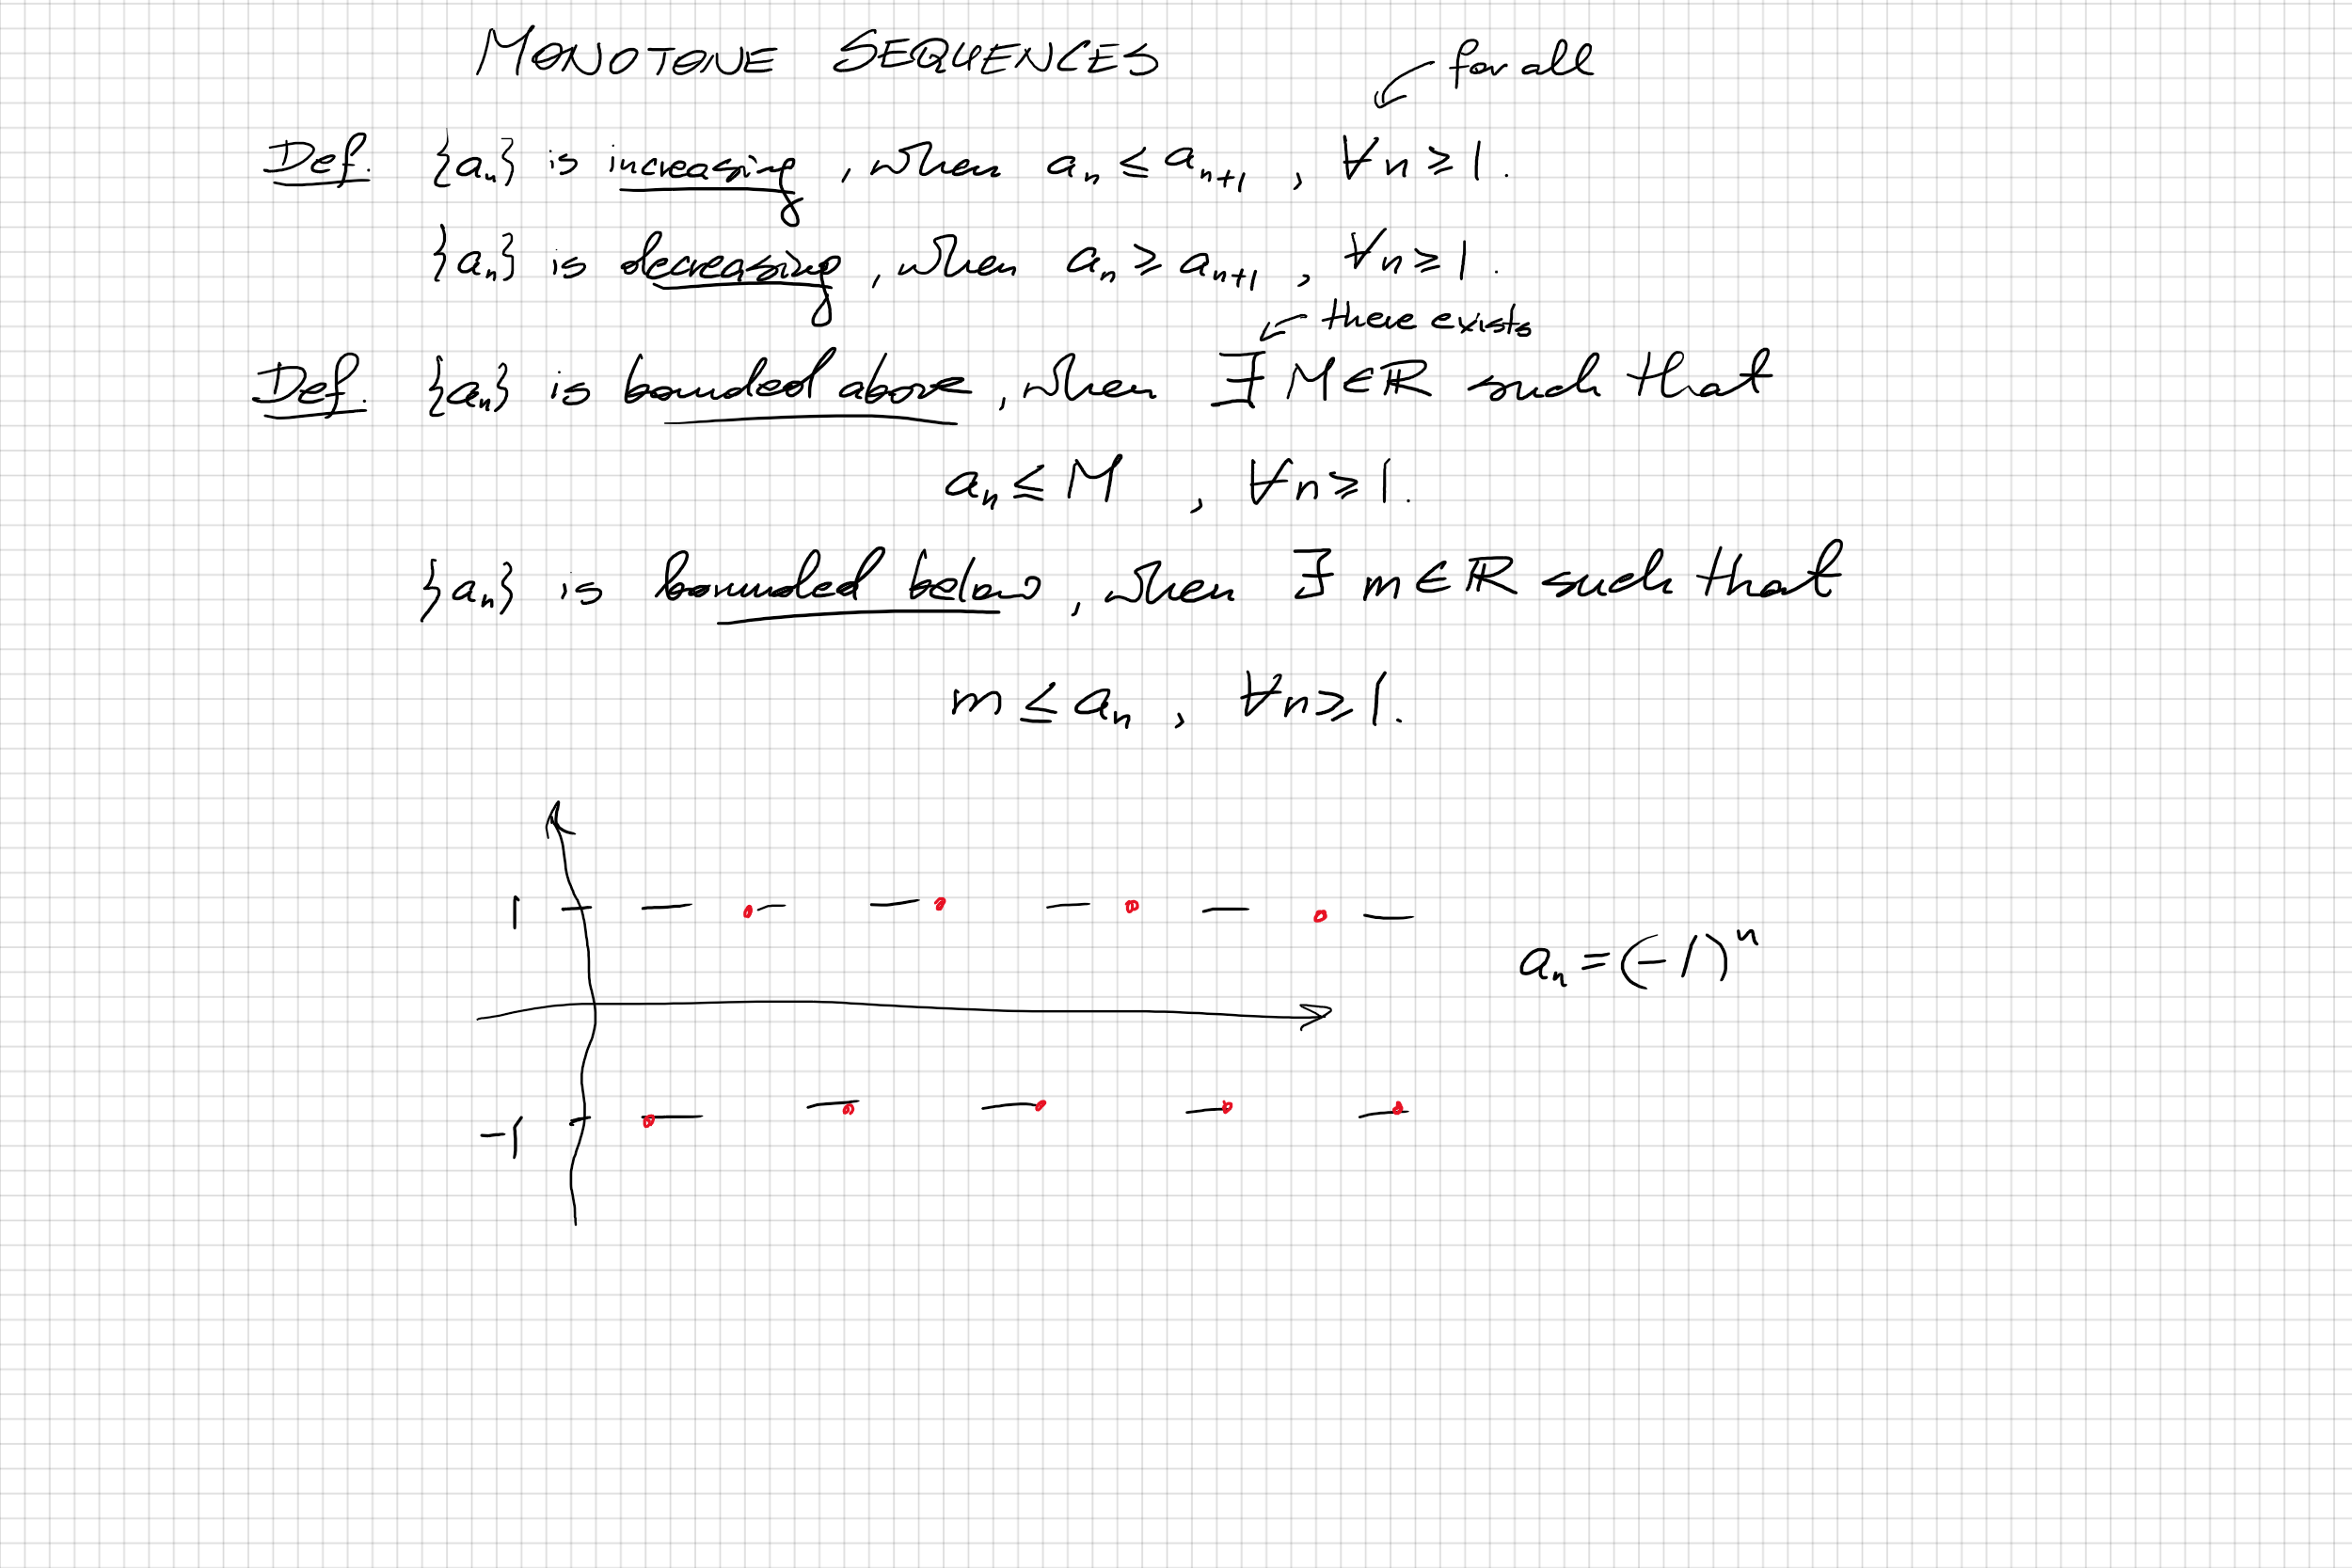 MONOTONE SEQUENCES
for all
Def. {aₙ} is increasing, when aₙ ≤ aₙ₊₁, ∀n ≥ 1.
{aₙ} is decreasing, when aₙ ≥ aₙ₊₁, ∀n ≥ 1.
there exists
Def. {aₙ} is bounded above, when ∃ M∈ℝ such that
aₙ ≤ M, ∀n ≥ 1.
{aₙ} is bounded below, when ∃ m∈ℝ such that
m ≤ aₙ, ∀n ≥ 1.
1
aₙ = (-1)ⁿ
-1